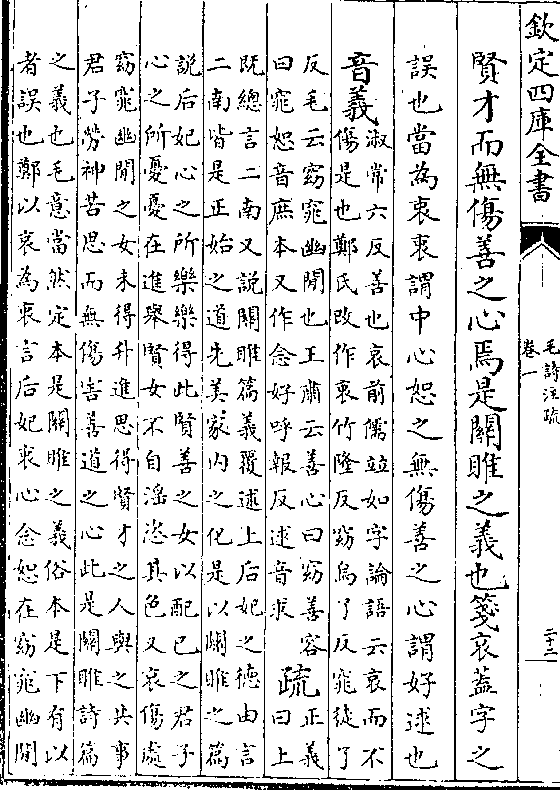 欽定四庫全書
毛詩注疏
卷一
二十三
賢才而無傷善之心焉是關雎之義也箋哀蓋字之
誤也當為衷衷謂中心恕之無傷善之心謂好逑也
音義
淑常六反善也哀前儒竝如字論語云哀而不
傷是也鄭氏改作衷竹隆反窈烏了反窕徒了
反毛云窈窕幽閒也王肅云善心曰窈善容
曰窕恕音庶本又作念好呼報反逑音求
疏
正義
曰上
既總言二南又說關雎篇義覆述上后妃之德由言
二南皆是正始之道先美家内之化是以關雎之篇
說后妃心之所樂樂得此賢善之女以配已之君子
心之所憂憂在進舉賢女不自淫恣其色又哀傷處
窈窕幽閒之女未得升進思得賢才之人與之共事
君子勞神苦思而無傷害善道之心此是關雎詩篇
之義也毛意當然定本是關雎之義俗本是下有以
者誤也鄭以哀為衷言后妃衷心念恕在窈窕幽閒